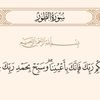 سُورَةُ الطُّورِ
بِسْمِ اللَّهِ الرَّحْمَٰنِ الرَّحِيمِ
رَبِّكَ فَإِنَّكَ بِأَعْيُنِنَا وَسَبِّحْ بِحَمْدِ رَبِّكَ